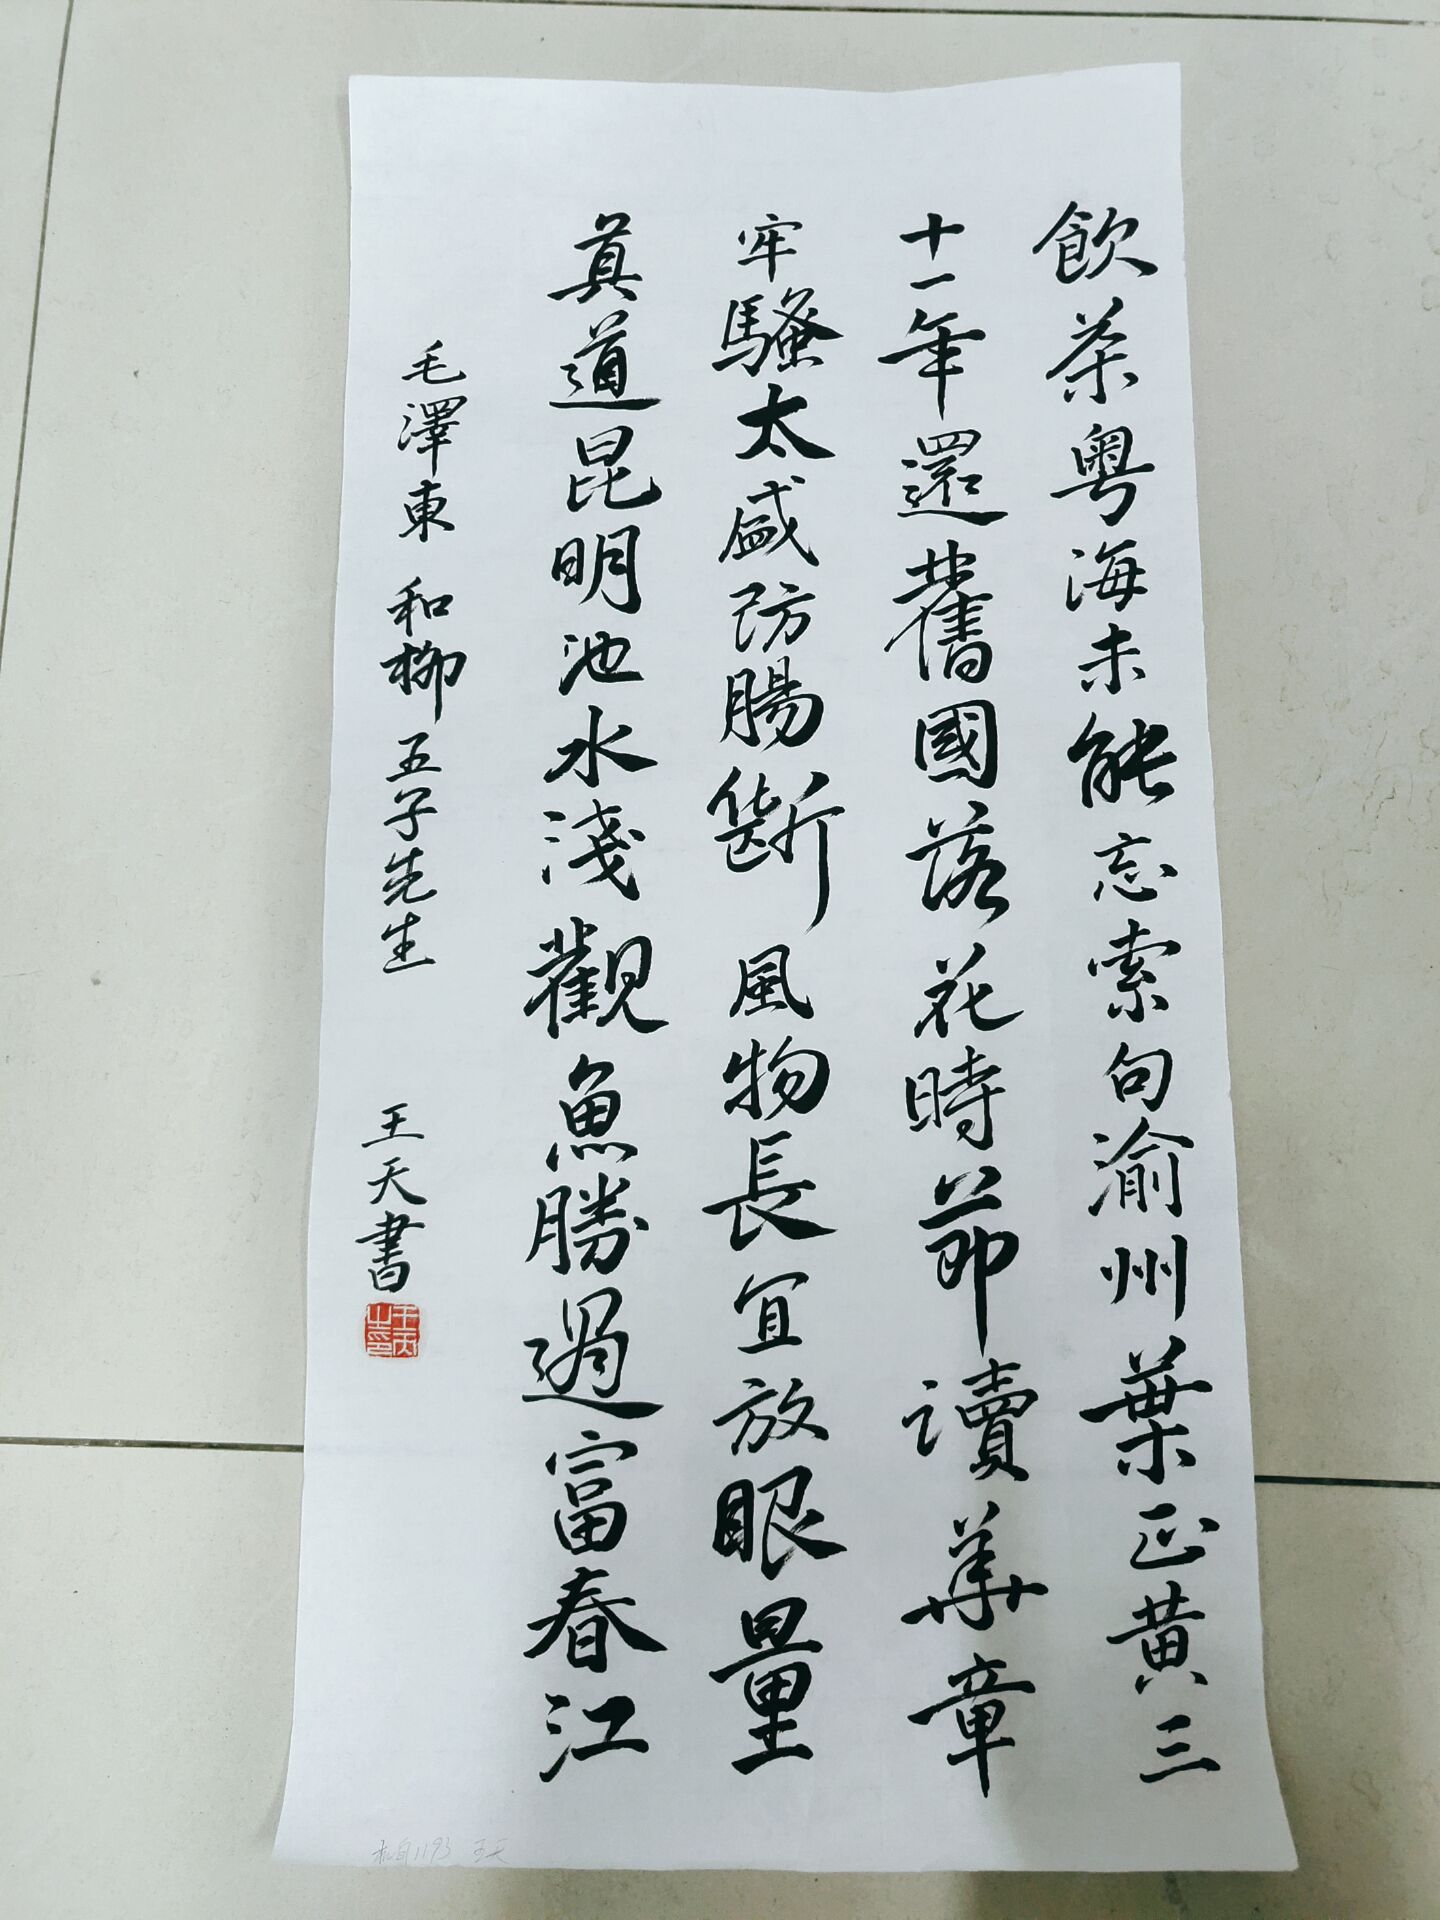 飲茶粵海未能忘索句渝州葉正黃三
十一年還舊國落花時節讀華章
牢騷太盛防腸斷風物長宜放眼量
莫道昆明池水淺觀魚勝過富春江
毛澤東 和柳五子先生
王天書